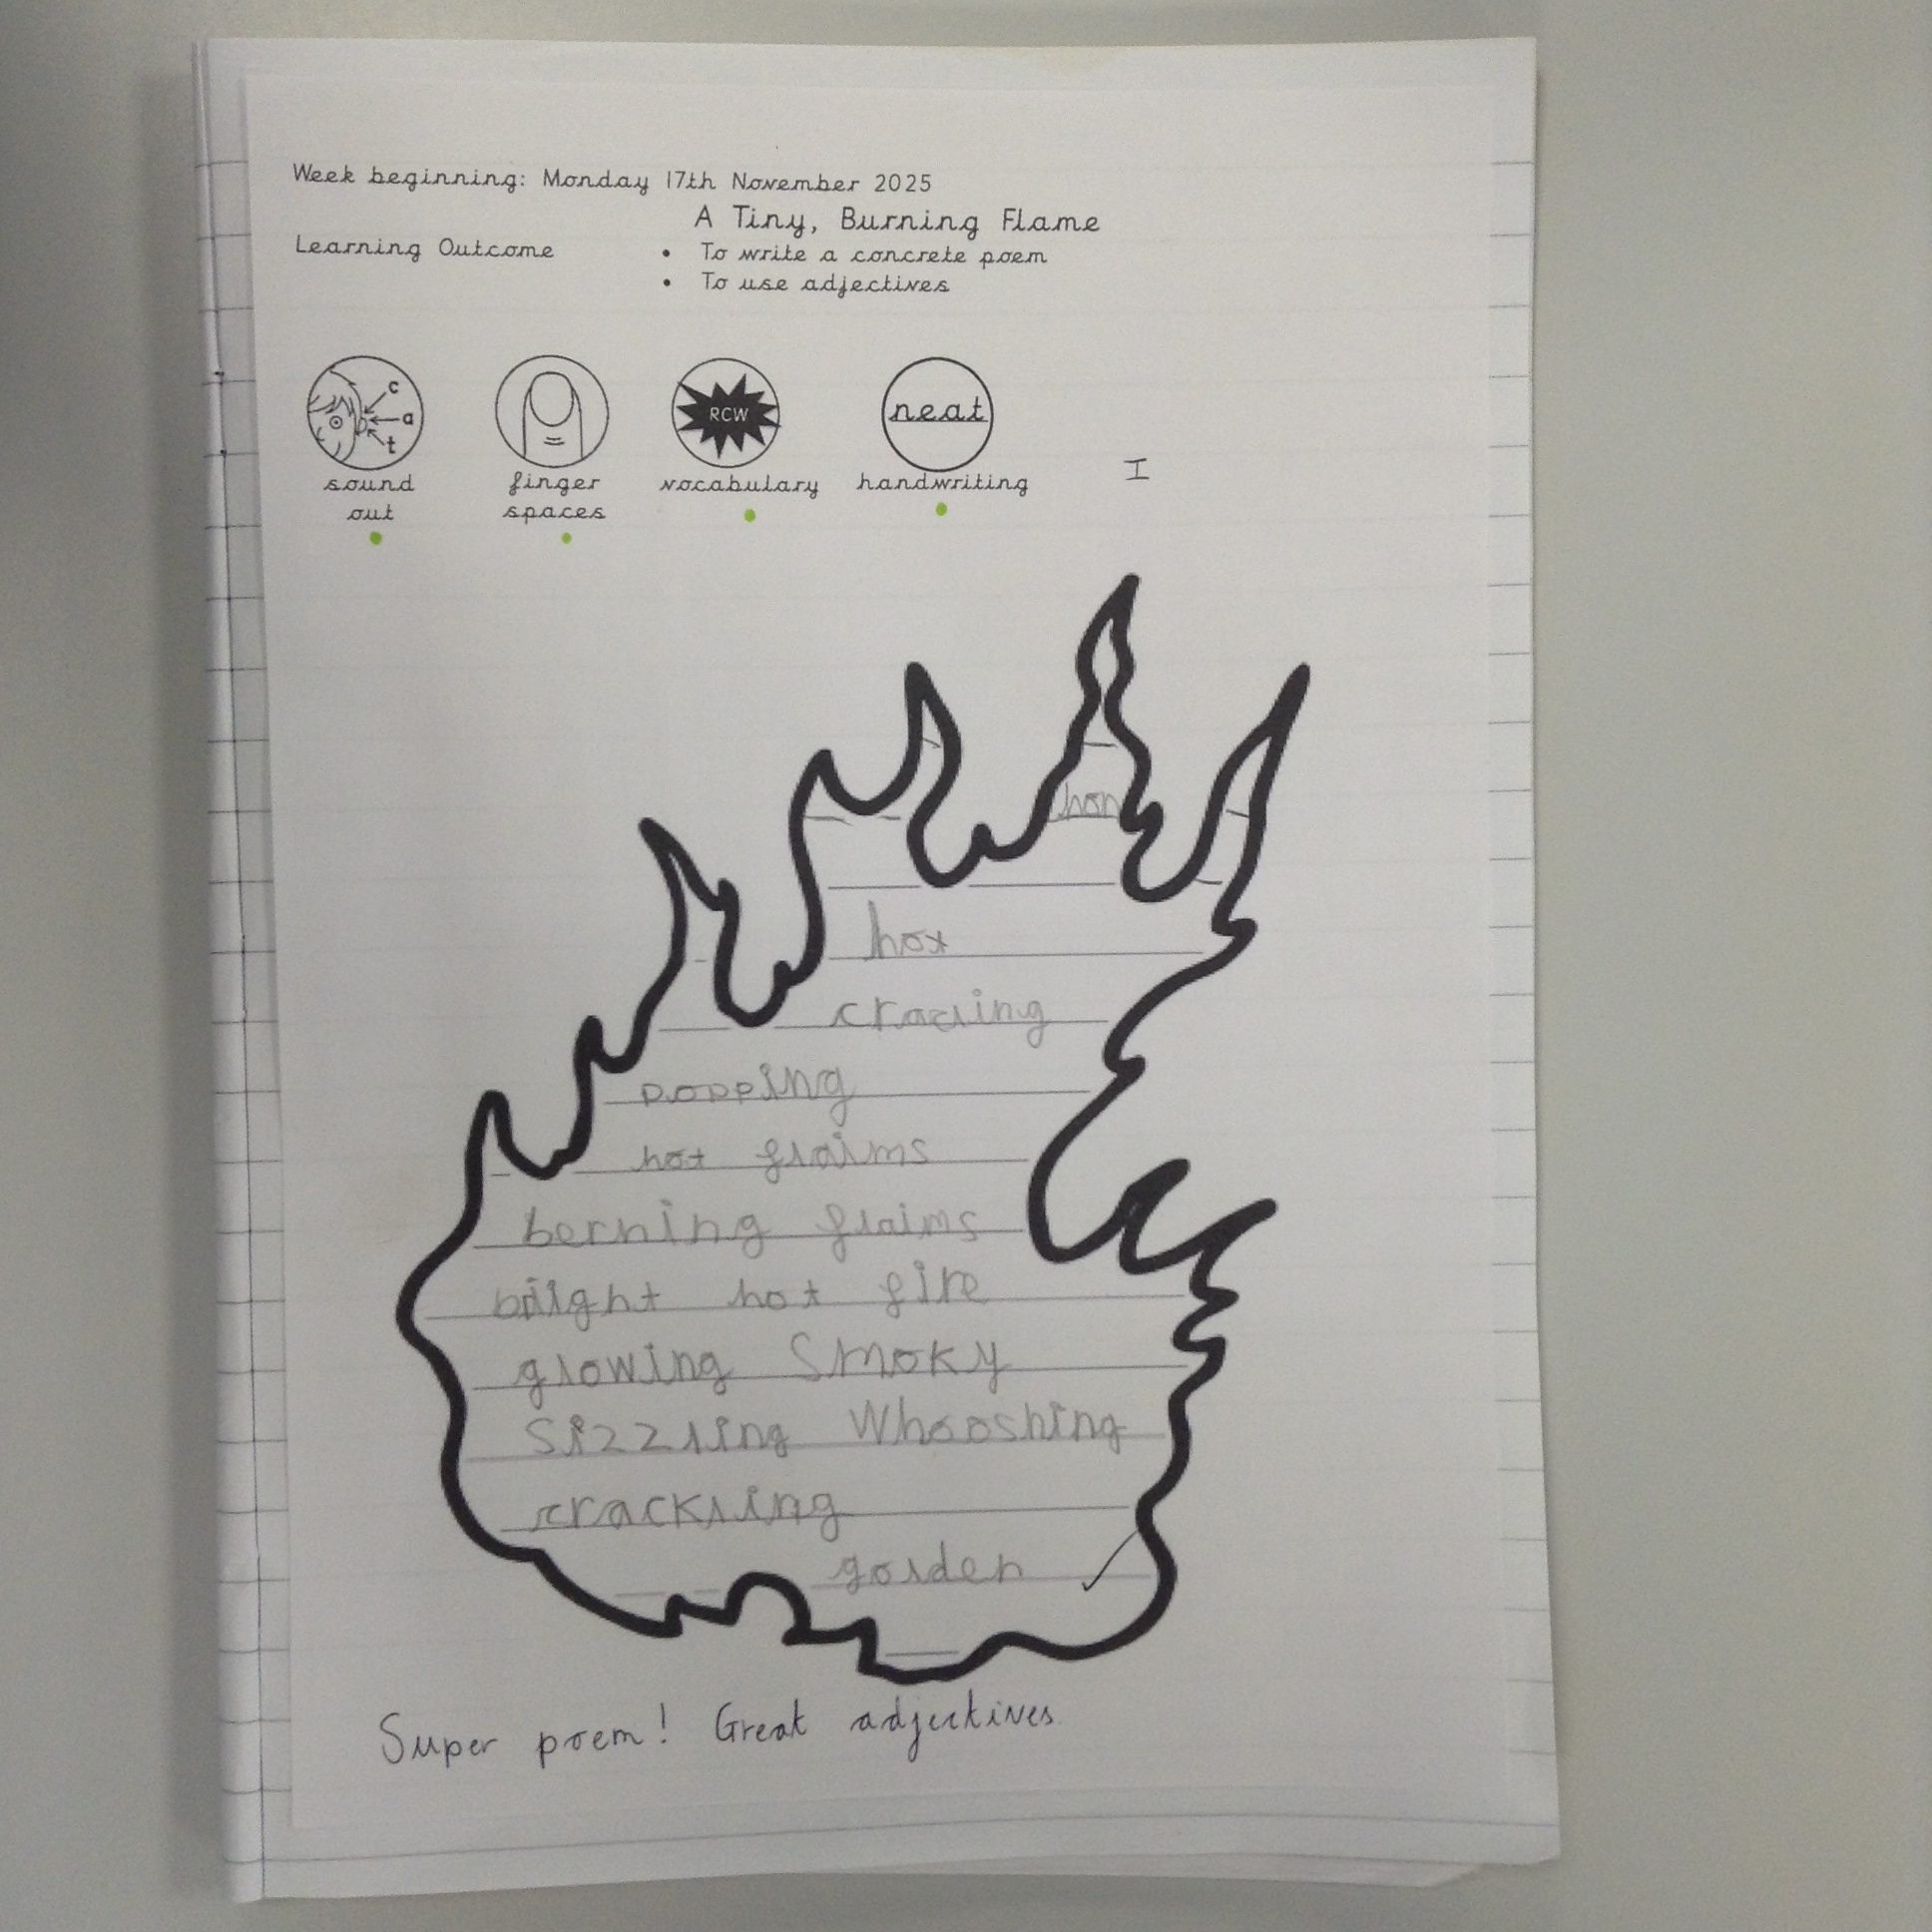 Week beginning: Monday 17th November 2025
A Tiny, Burning Flame
Learning Outcome
• To write a concrete poem
• To use adjectives
c
a
t
RCW
neat
sound out
finger spaces
vocabulary
handwriting
I
hot
popping
hot flaims
berning flaims
bright hot fire
glowing Smoky
Sizzling Whooshing
crackling
golden
Super poem! Great adjectives.